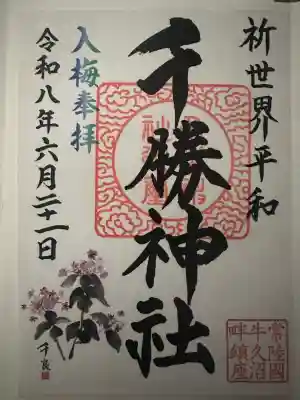 祈世界平和
千勝神社
入梅奉拝
令和八年六月二十一日
常陸國
牛久沼
畔鎮座